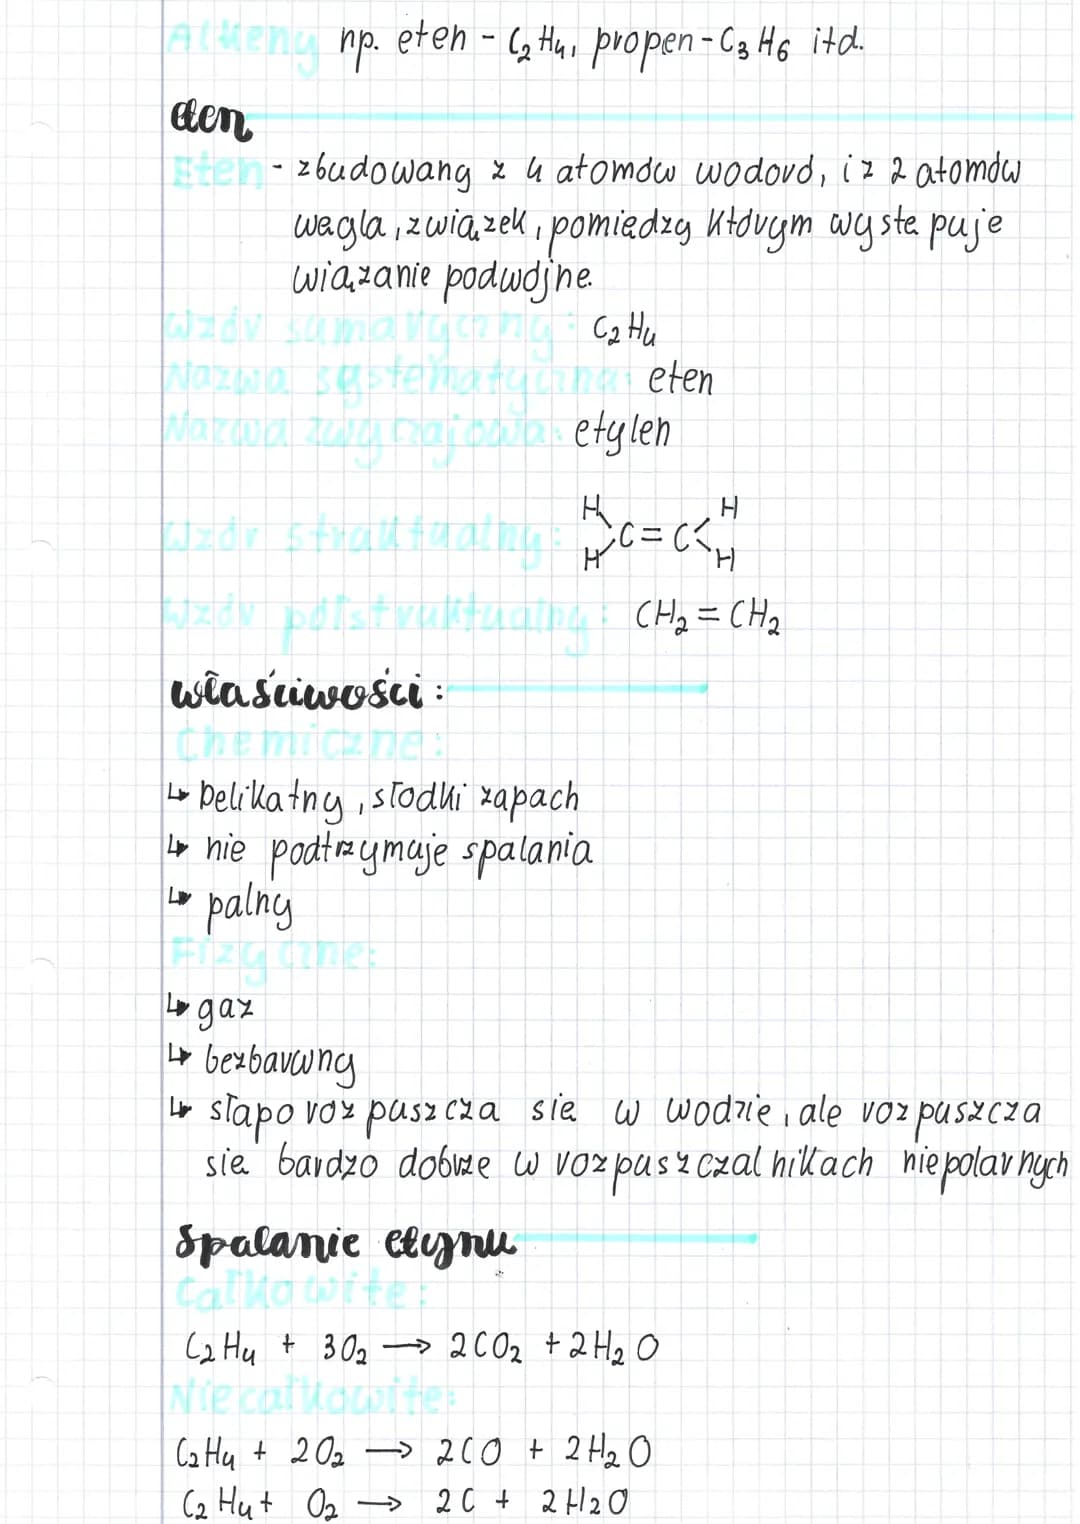 Alkeny np. eten - C₂H₄, propen - C₃H₆ itd.
eten
Eten - zbudowany z 4 atomów wodoru, i z 2 atomów
węgla, związek, pomiędzy którym występuje
wiązanie podwójne.
Wzór sumaryczny: C₂H₄
Nazwa systematyczna: eten
Nazwa zwyczajowa: etylen
H H
Wzór struktualny: C = C
H H
Wzór półstruktualny: CH₂ = CH₂
właściwości:
Chemiczne:
↳ Delikatny, słodki zapach
↳ nie podtrzymuje spalania
↳ palny
Fizyczne:
↳ gaz
↳ bezbarwny
↳ słapo rozpuszcza się w wodzie, ale rozpuszcza
się bardzo dobrze w rozpuszczalnikach niepolarnych
Spalanie etynu
Całkowite:
C₂H₄ + 3O₂ → 2CO₂ + 2H₂O
Niecałkowite:
C₂H₄ + 2O₂ → 2CO + 2H₂O
C₂H₄ + O₂ → 2C + 2H2O